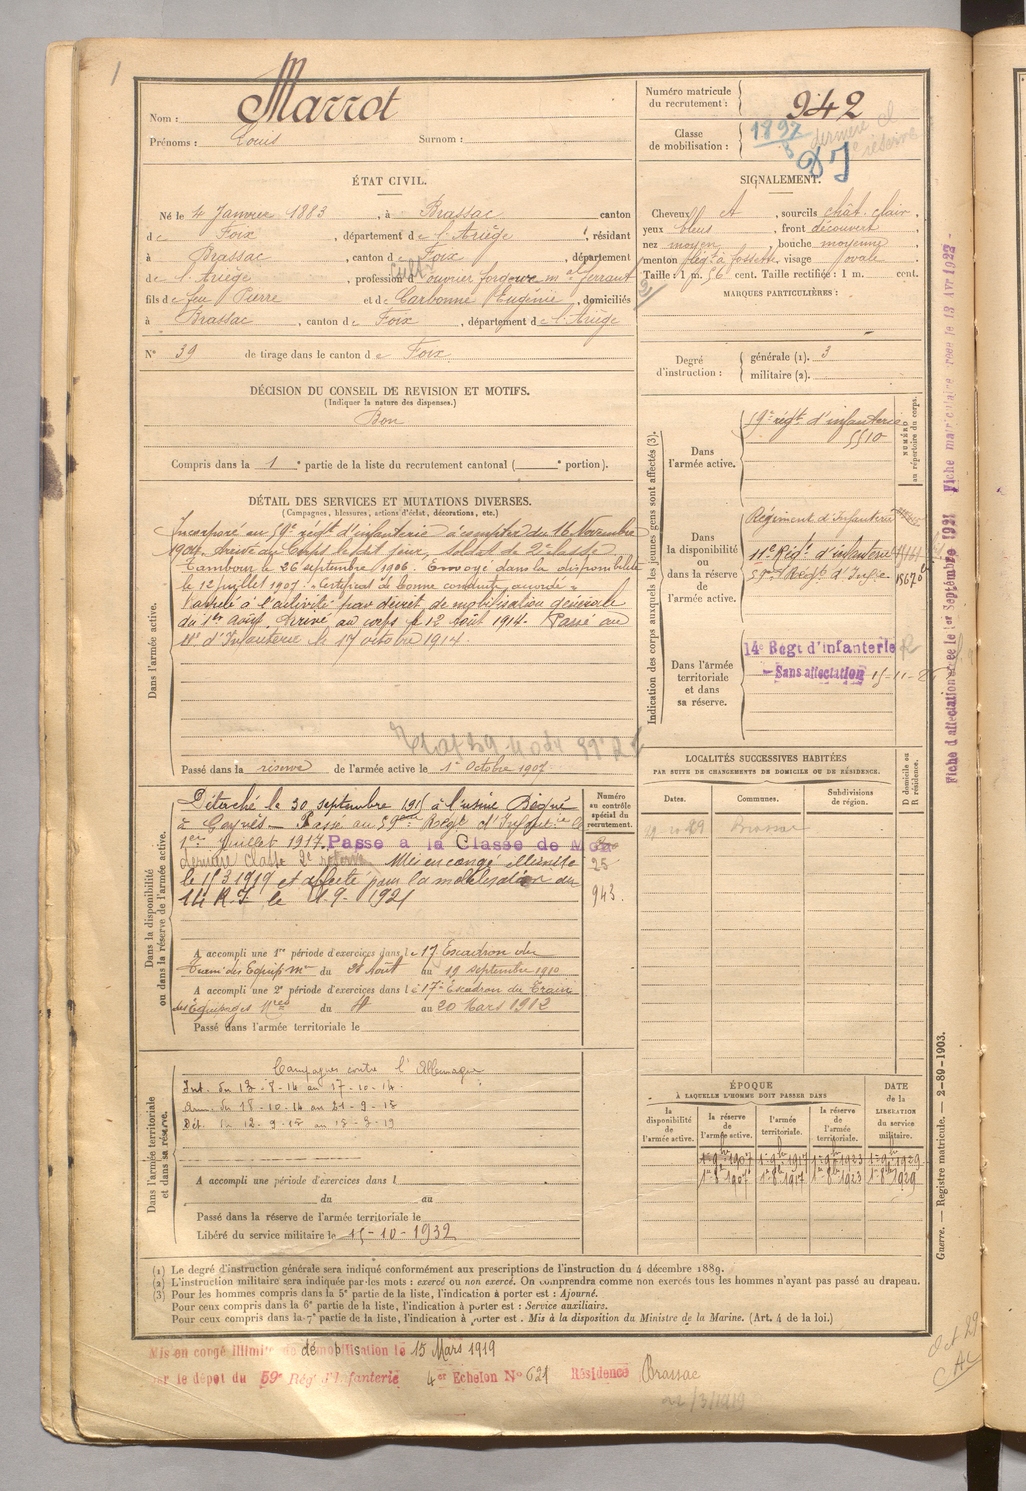 1
Nom : Marrot
Prénoms : Louis Surnom :
Numéro matricule du recrutement : 942
Classe de mobilisation : 1897
dernière cl
réserve
ÉTAT CIVIL.
Né le 4 Janvier 1883, à Brassac canton
de Foix, département de l'Ariège, résidant
à Brassac, canton de Foix, département
de l'Ariège, profession d ouvrier forgeur mal ferrant
fils de feu Pierre et de Carbonne Eugénie, domiciliés
à Brassac, canton de Foix, département de l'Ariège
N° 39 de tirage dans le canton de Foix
SIGNALEMENT.
Cheveux ch, sourcils chât. clair,
yeux bleus, front découvert
nez moyen, bouche moyenne
menton à fossette, visage ovale
Taille : 1 m. 56 cent. Taille rectifiée : 1 m. cent.
MARQUES PARTICULIÈRES :
Degré d'instruction : générale (1). 3
militaire (2).
DÉCISION DU CONSEIL DE REVISION ET MOTIFS.
(Indiquer la nature des dispenses.)
Bon
Compris dans la 1e partie de la liste du recrutement cantonal ( e portion).
DÉTAIL DES SERVICES ET MUTATIONS DIVERSES.
(Campagnes, blessures, actions d'éclat, décorations, etc.)
Dans l'armée active.
Incorporé au 59e régt d'infanterie à compter du 16 Novembre
1904. Arrivé au Corps le dit jour, soldat de 2e classe
Tambour le 26 septembre 1906. Envoyé dans la disponibilité
le 12 juillet 1907. Certificat de bonne conduite accordé.
Rappelé à l'activité par décret de mobilisation générale
du 1er août. Arrivé au corps le 12 Août 1914. Passé au
11e d'Infanterie le 17 octobre 1914.
Passé dans la réserve de l'armée active le 1er Octobre 1907
Indication des corps auxquels les jeunes gens sont affectés (3).
Dans l'armée active.
59e régt d'infanterie
5510
NUMÉRO au répertoire du corps.
Dans la disponibilité ou dans la réserve de l'armée active.
Régiment d'Infanterie
11e Régt d'infanterie
59e Régt d'Infie 15670
Dans l'armée territoriale et dans sa réserve.
14e Régt d'infanterie
Sans affectation 15-11-26
Fiche d'affectation créée le 1er Septembre 1921 Fiche matriculaire créée le 13 Avr 1922
Dans la disponibilité ou dans la réserve de l'armée active.
Détaché le 30 septembre 1915 à l'usine Bégué
à Ceyrès. Passé au 59ème Régt d'Infanterie le
1er Juillet 1917. Passé à la Classe de Mob
dernière classe 2e réserve Mis en congé illimité
le 15 3 1919 et affecté pour la mobilisation au
14 R.I. le 1.9.1921
Numéro au contrôle spécial du recrutement.
25
943.
A accompli une 1re période d'exercices dans le 17 Escadron du
Train des Equip. Mres du 28 Août au 19 septembre 1910
A accompli une 2e période d'exercices dans le 17e Escadron du Train
des Equipages Mres du 4 au 20 Mars 1912
Passé dans l'armée territoriale le
LOCALITÉS SUCCESSIVES HABITÉES
PAR SUITE DE CHANGEMENTS DE DOMICILE OU DE RÉSIDENCE.
Dates. Communes. Subdivisions de région. D domicile ou R résidence.
29-10-29 Brassac
Dans l'armée territoriale et dans sa réserve.
Campagnes contre l'Allemagne
Int. du 12-8-14 au 17-10-14
Arm. du 18-10-14 au 21-9-15
Dét. du 12-9-15 au 15-3-19
A accompli une période d'exercices dans l
du au
Passé dans la réserve de l'armée territoriale le
Libéré du service militaire le 15-10-1932
ÉPOQUE
À LAQUELLE L'HOMME DOIT PASSER DANS
la disponibilité de l'armée active. la réserve de l'armée active. l'armée territoriale. la réserve de l'armée territoriale. DATE de la LIBÉRATION du service militaire.
1er 9bre 1907 1er 9bre 1917 1er 9bre 1923 1er 9bre 1929
1er 8bre 1907 1er 8bre 1917 1er 8bre 1923 1er 8bre 1929
Guerre. — Registre matricule. — 2-89-1903.
(1) Le degré d'instruction générale sera indiqué conformément aux prescriptions de l'instruction du 4 décembre 1889.
(2) L'instruction militaire sera indiquée par les mots : exercé ou non exercé. On comprendra comme non exercés tous les hommes n'ayant pas passé au drapeau.
(3) Pour les hommes compris dans la 5e partie de la liste, l'indication à porter est : Ajourné.
Pour ceux compris dans la 6e partie de la liste, l'indication à porter est : Service auxiliaire.
Pour ceux compris dans la 7e partie de la liste, l'indication à porter est : Mis à la disposition du Ministre de la Marine. (Art. 4 de la loi.)
Mis en congé illimité de démobilisation le 15 Mars 1919
par le dépôt du 59e Rég. d'Infanterie 4er Echelon N° 621 Résidence Brassac
Oct 29